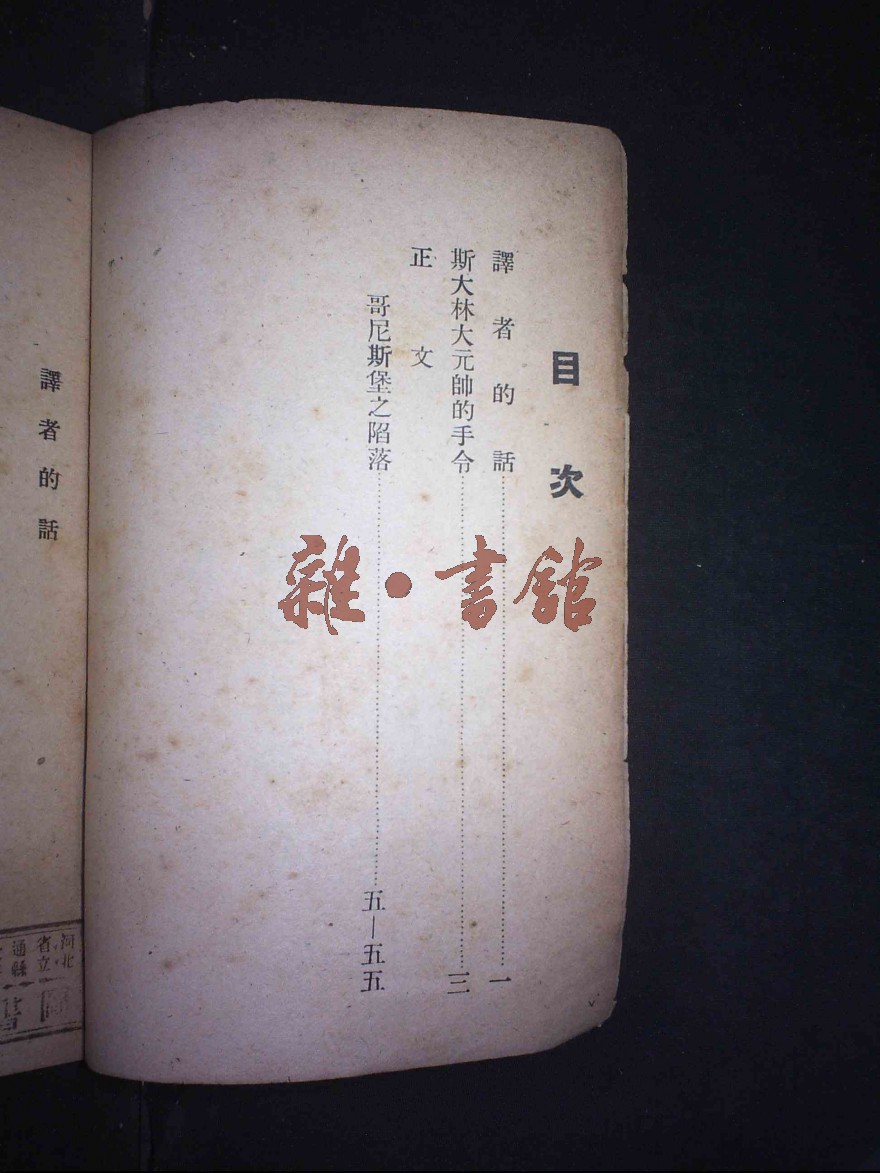 目次
譯者的話一
斯大林大元帥的手令三
正文
哥尼斯堡之陷落五—五五
雜·書舘
譯者的話
河北
省立
通縣
圖
書